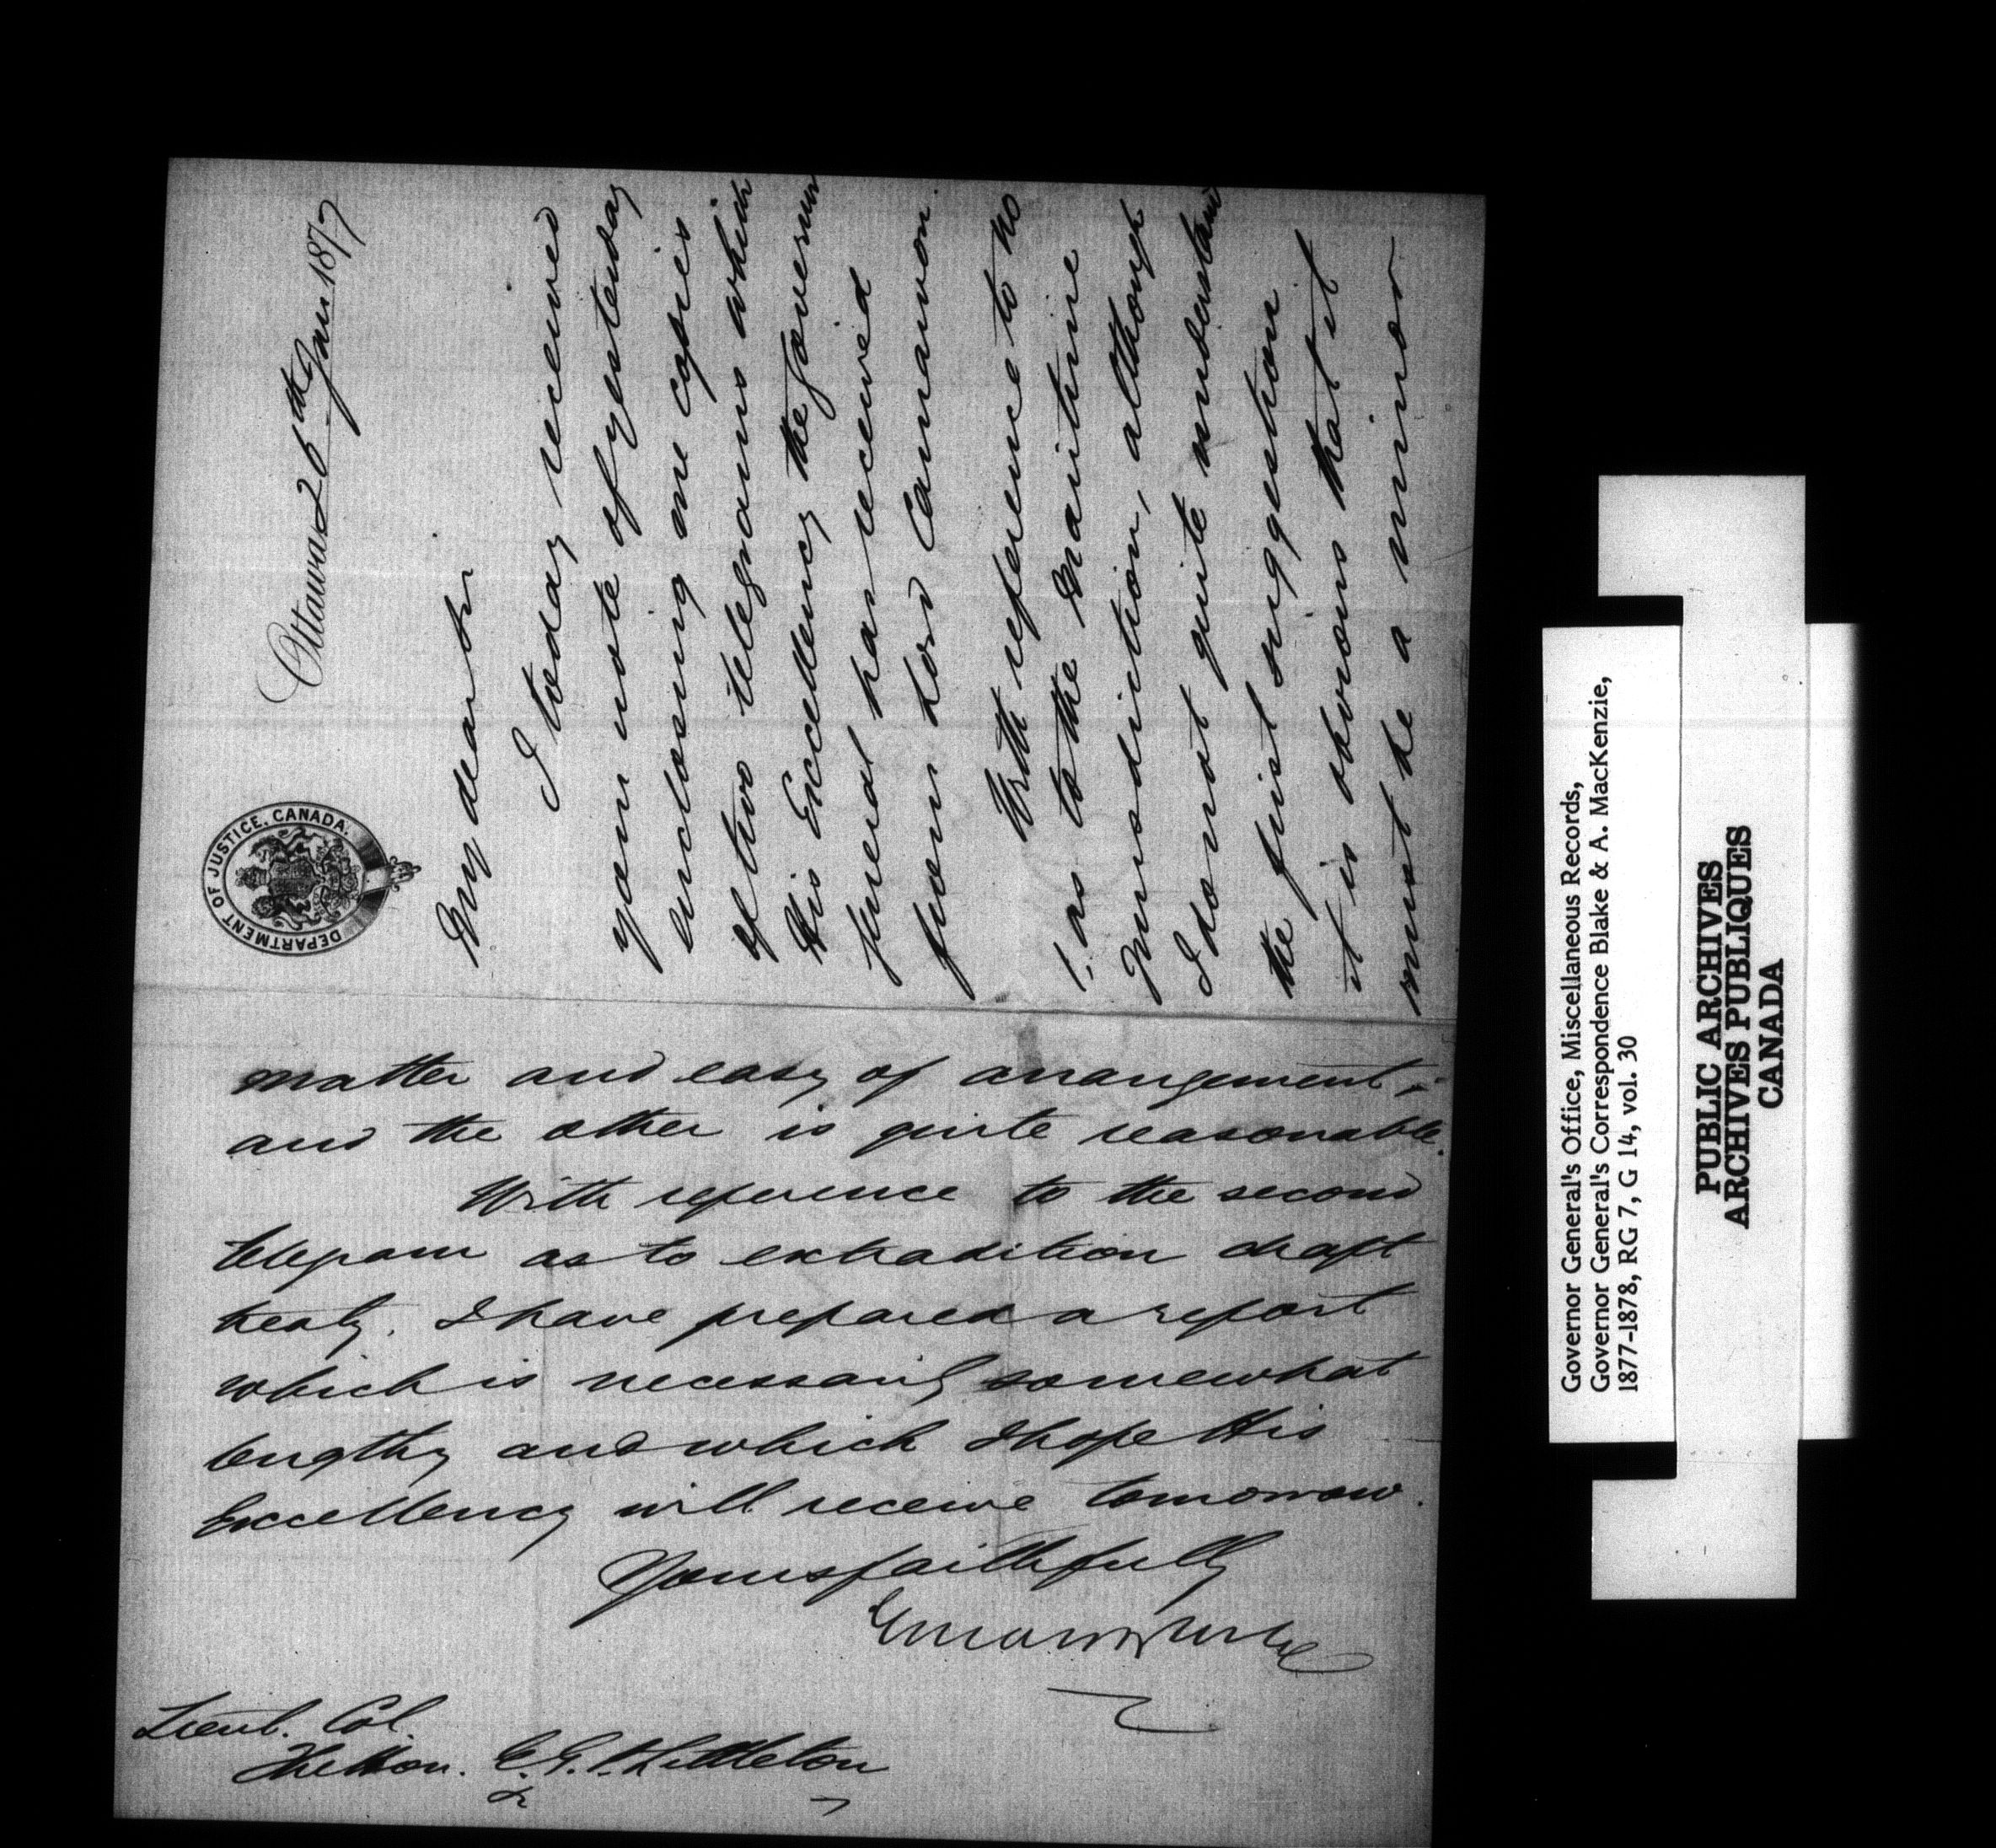 DEPARTMENT OF JUSTICE, CANADA.
Ottawa 26th Jany 1877
My dear Sir
I today received
your note of yesterday
enclosing me copies
of two telegrams which
His Excellency the Governor
General has received
from Lord Carnarvon.
With reference to No
1. as to the Maritime
Jurisdiction, although
I do not quite understand
the first suggestion
it is obvious that it
must be a minor
matter and easy of arrangement;
and the other is quite reasonable.
With reference to the second
telegram as to extradition draft
treaty. I have prepared a report
which is necessarily somewhat
lengthy and which I hope His
Excellency will receive tomorrow.
Yours faithfully
Edward Blake
Lieut. Col.
The Hon. E. G. P. Littleton
Governor General's Office, Miscellaneous Records,
Governor General's Correspondence Blake & A. MacKenzie,
1877-1878, RG 7, G 14, vol. 30
PUBLIC ARCHIVES
ARCHIVES PUBLIQUES
CANADA